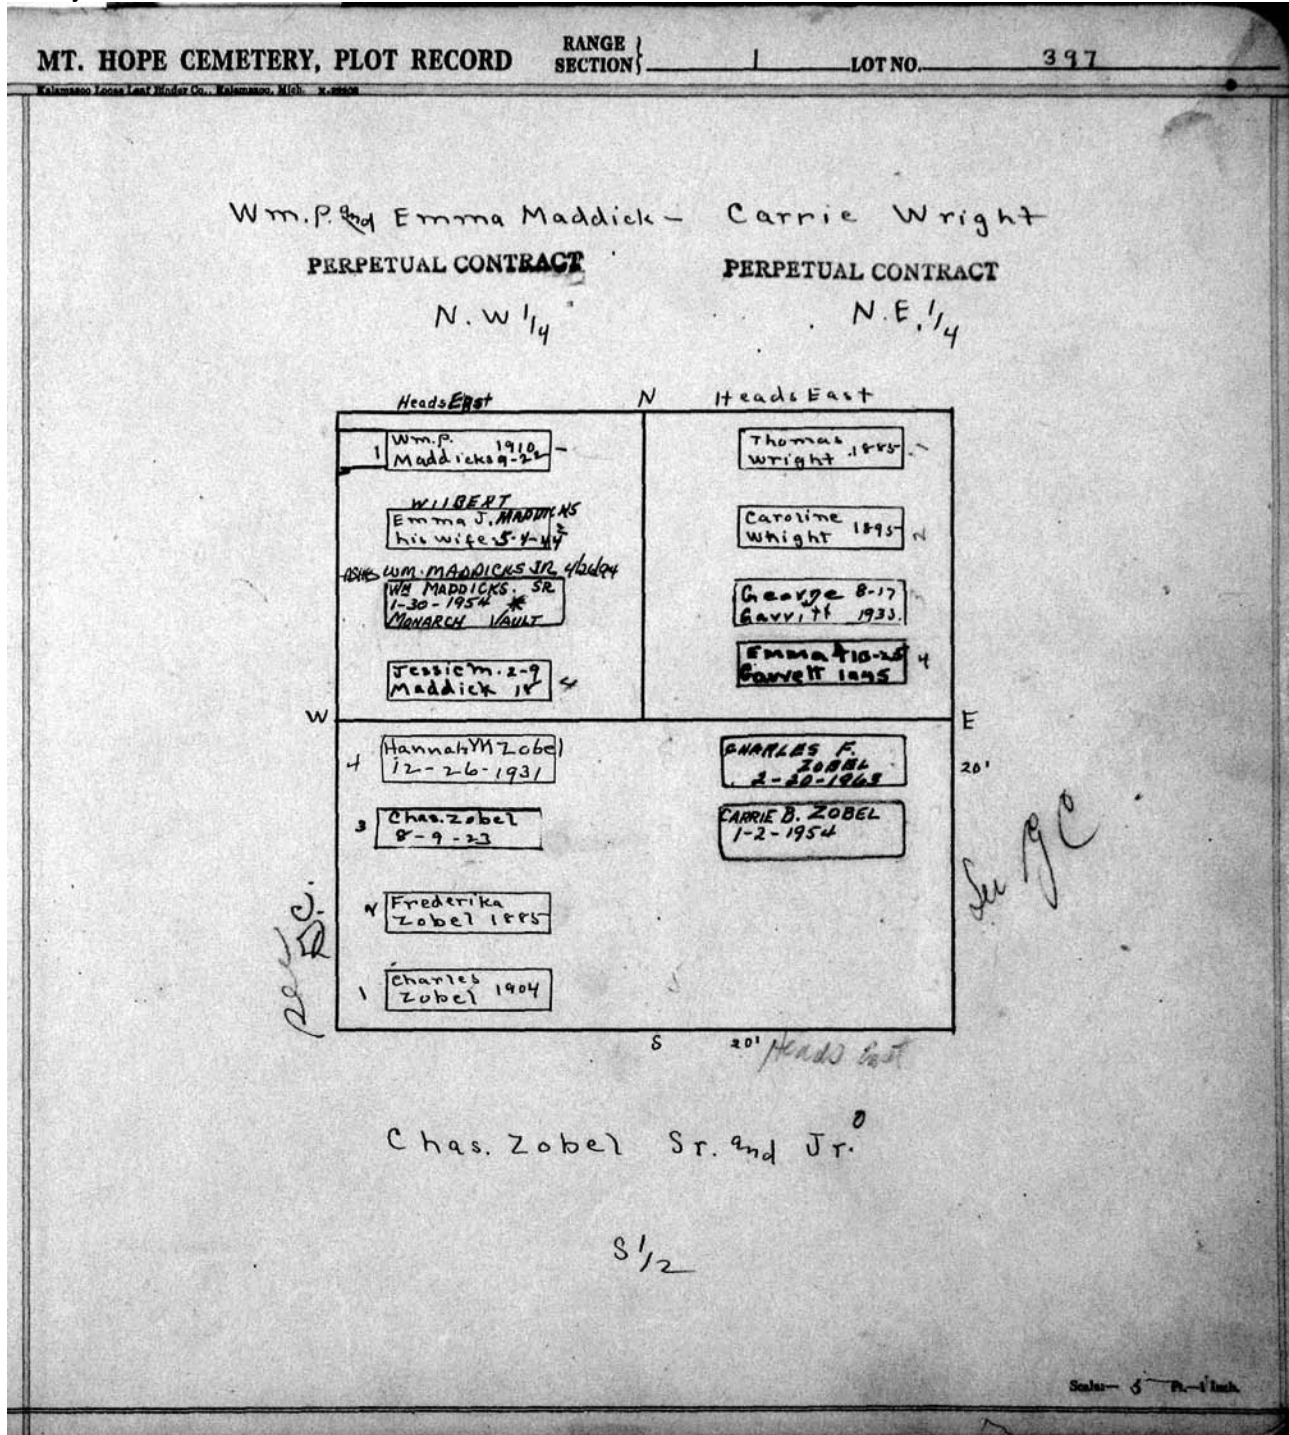 MT. HOPE CEMETERY, PLOT RECORD
RANGE
SECTION
1
LOT NO.
397
Kalamazoo Loose Leaf Binder Co., Kalamazoo, Mich.
Wm. P. and Emma Maddick - Carrie Wright
PERPETUAL CONTRACT
PERPETUAL CONTRACT
N. W 1/4
N. E. 1/4
Heads East
N
Heads East
1
Wm. P. 1910
Maddicks 9-22
WILBERT
Emma J. MADDICKS
his wife 5-4-44
2
ASHES WM. MADDICKS JR 4/26/94
WM MADDICKS. SR
1-30-1954 *
MONARCH VAULT
Jessie M. 2-9
Maddick 18
4
Thomas
Wright 1885
Caroline
Whight 1895
2
George 8-17
Garritt 1933.
Emma 10-25
Garrett 1945
4
W
E
4
Hannah M Zobel
12-26-1931
3
Chas. Zobel
8-9-23
2
Frederika
Zobel 1885
1
Charles
Zobel 1904
CHARLES F.
ZOBEL
2-20-1963
CARRIE B. ZOBEL
1-2-1954
20'
See
S
20'
Heads East
Chas. Zobel Sr. and Jr.
S 1/2
Scale:— 5 Ft.—1 Inch.